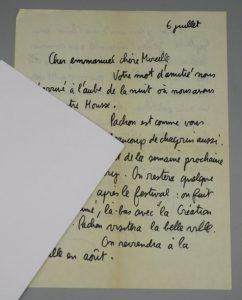 6 juillet
Cher emmanuel chère Mireille
Votre mot d'amitié nous
arrivé à l'aube de la nuit où nous avons
Mousse.
Pachon est comme vous
beaucoup de chagrin aussi.
de la semaine prochaine
On restera quelque
après le festival : on fait
là-bas avec la Création
Pachon visitera la belle ville.
On reviendra à la
en août.